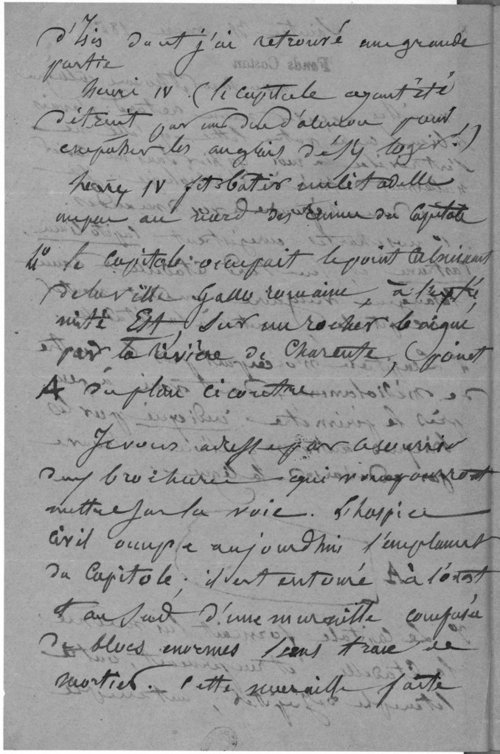 d'Isis dont j'ai retrouvé une grande
partie
henri IV (le capitole ayant été
détruit par un duc d'alencon pour
empecher les anglais de s'y loger!)
henry IV fit batir une citadelle
au nord des ruines du Capitole
4° le capitole occupait le point culminant
de la ville Gallo romaine, à l'extré
mité Est, sur un rocher baigné
par la rivière de Charente, (point
A du plan ci contre
Je vous adresse par ce courrier
deux brochures qui vous pourront
mettre sur la voie. L'hospice
civil occupe aujourdhui l'emplacemt
du Capitole. il est entouré à l'ouest
et au sud d'une muraille composée
de blocs enormes sans trace de
mortier. Cette muraille faite
Fonds Coston